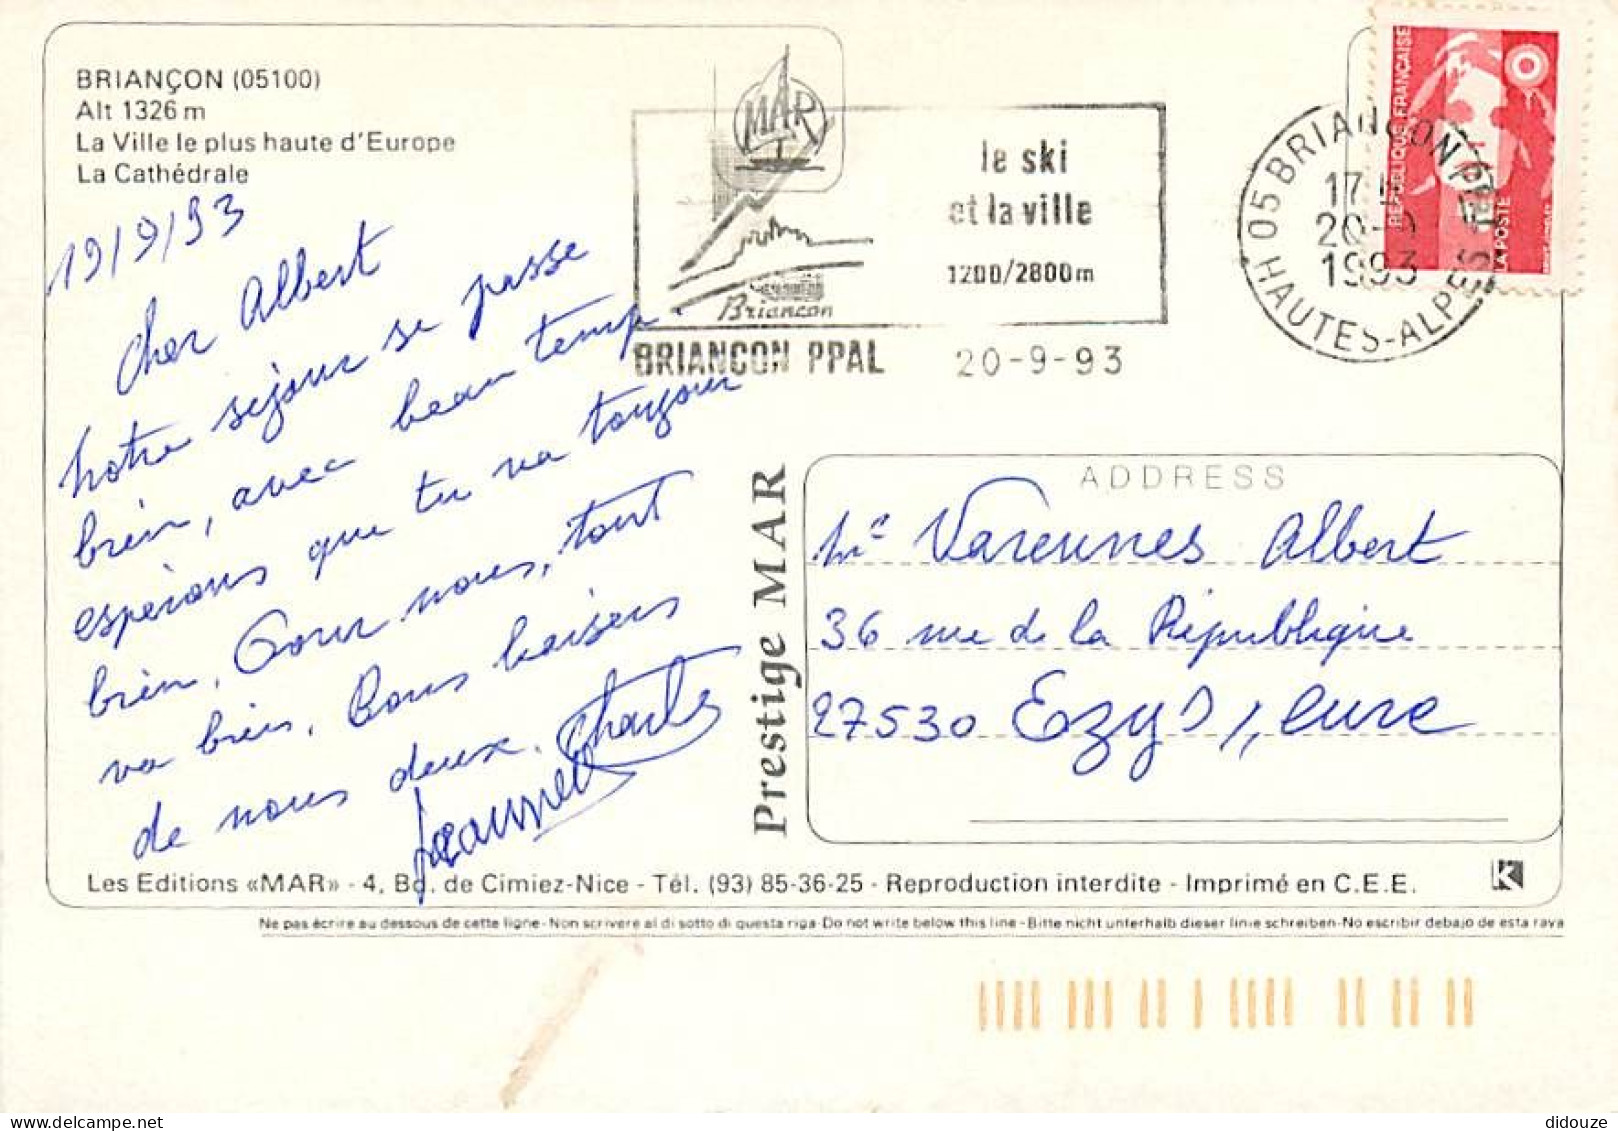 BRIANÇON (05100)
Alt 1326 m
La Ville le plus haute d'Europe
La Cathédrale
19/9/93
Cher Albert
notre sejour se passe
bien, avec beau temps.
esperons que tu va toujour
bien, Pour nous, tout
va bien. Bons baisers
de nous deux. Charles
Jeannette
MAR
le ski
et la ville
1200/2800m
Briancon
BRIANCON PPAL 20-9-93
05 BRIANCON PPAL
17 H
20-9
1993
HAUTES-ALPES
REPUBLIQUE FRANÇAISE
LA POSTE
Prestige MAR
ADDRESS
Mr Varennes Albert
36 rue de la République
27530 Ezy S/, eure
Les Editions «MAR» - 4, Bd. de Cimiez-Nice - Tél. (93) 85-36-25 - Reproduction interdite - Imprimé en C.E.E.
K
Ne pas écrire au dessous de cette ligne-Non scrivere al di sotto di questa riga-Do not write below this line-Bitte nicht unterhalb dieser linie schreiben-No escribir debajo de esta raya
didouze